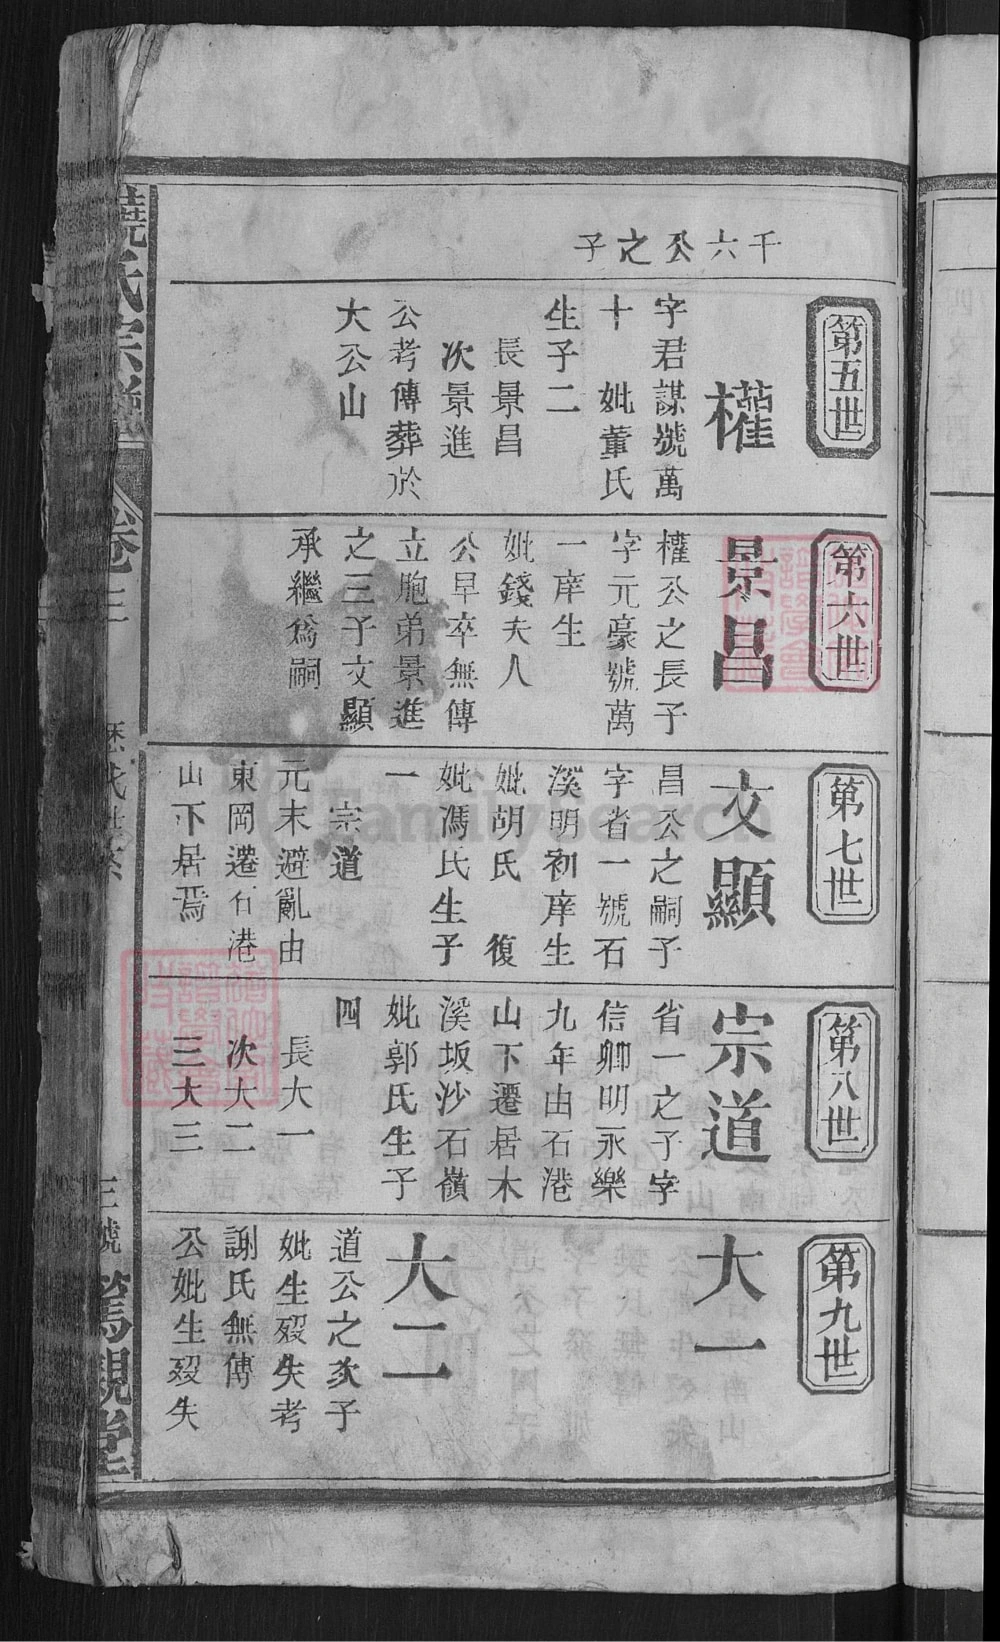 千六公之子
第五世
權
字君謀號萬
十　妣董氏
生子二
長景昌
次景進
公考傳葬於
大公山
第六世
景昌
權公之長子
字元豪號萬
一庠生
妣錢夫人
公早卒無傳
立胞弟景進
之三子文顯
承繼爲嗣
第七世
文顯
昌公之嗣子
字省一號石
溪明初庠生
妣胡氏　復
妣馮氏生子
一
宗道
元末避亂由
東岡遷石港
山下居焉
第八世
宗道
省一之子字
信卿明永樂
九年由石港
山下遷居木
溪坂沙石嶺
妣郭氏生子
四
長大一
次大二
三大三
第九世
大一
大二
道公之次子
妣生殁失考
謝氏無傳
公妣生殁失
饒氏宗譜
卷三
歷代世系
三號
篤親堂
FamilySearch